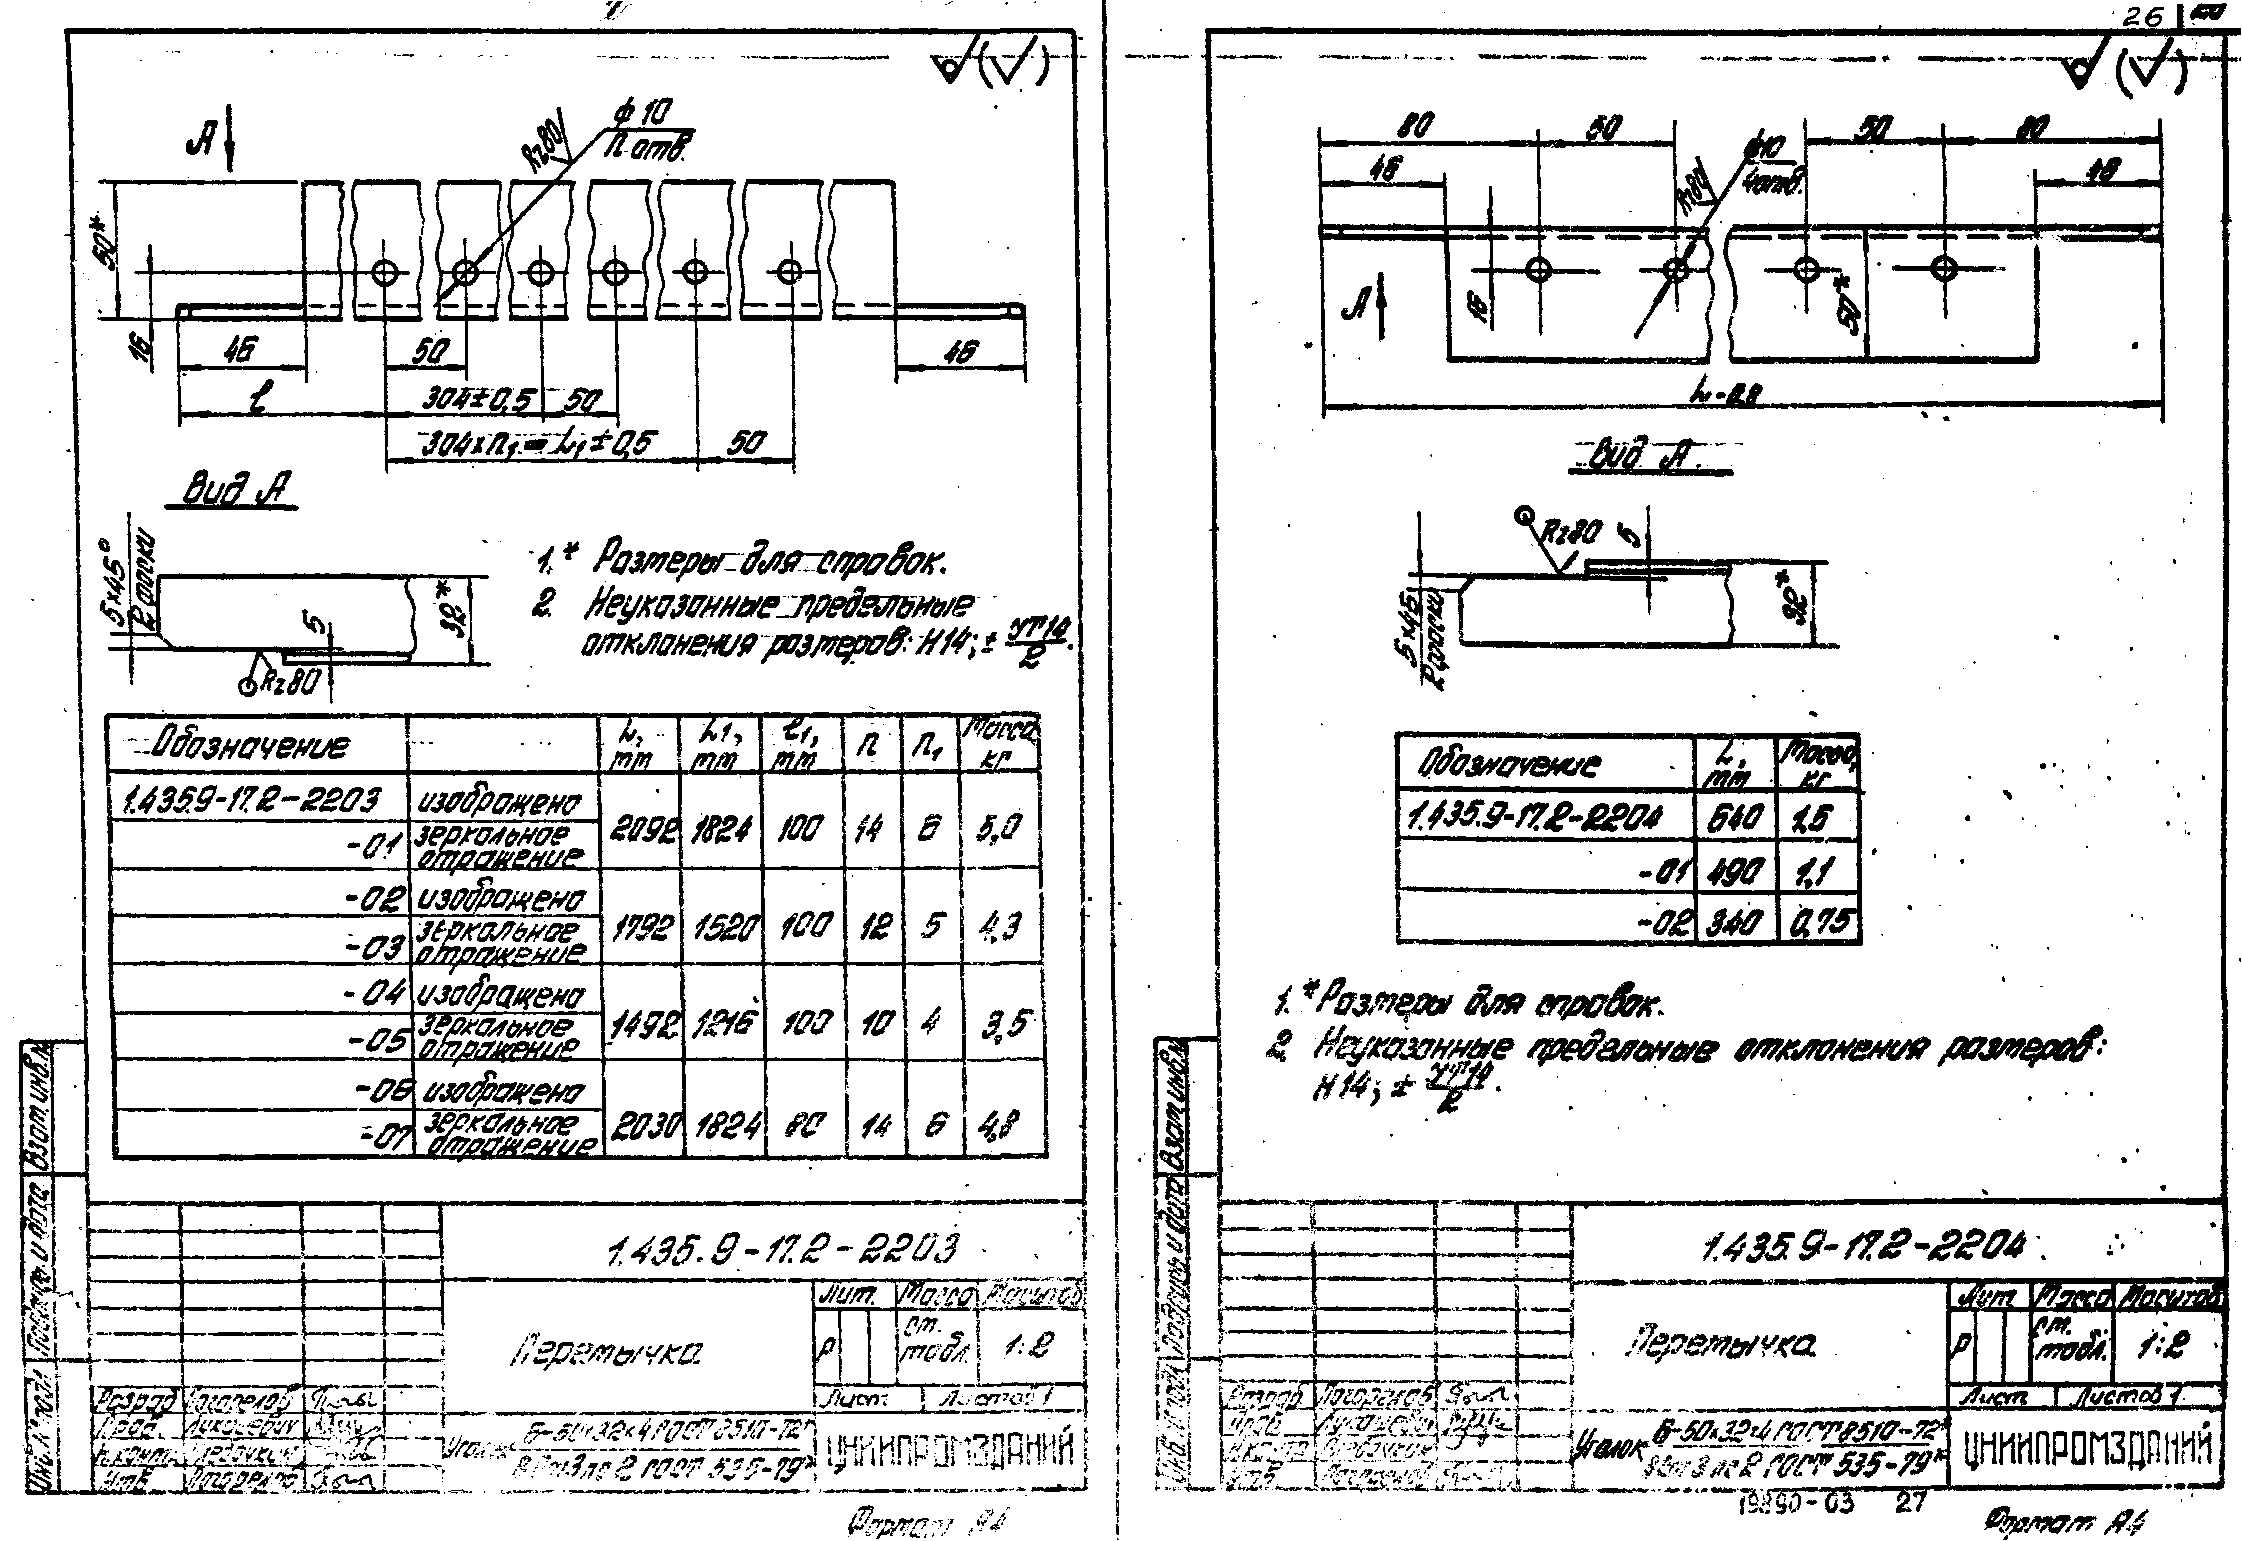 26
А
ф10
n отв.
Rz80
50*
16
46
50
46
l
304±0,5
50
304×n₁ = L₁ ±0,5
50
Вид А
5×45°
2 фаски
5
32*
Rz80
1.* Размеры для справок.
2. Неуказанные предельные
отклонения размеров: Н14; ± УТ14/2.
Обозначение L, мм L1, мм l₁, мм n n₁ Масса кг
1.435.9-17.2-2203 изображено 2092 1824 100 14 6 5,0
-01 зеркальное отражение
-02 изображено 1792 1520 100 12 5 4,3
-03 зеркальное отражение
-04 изображено 1492 1216 100 10 4 3,5
-05 зеркальное отражение
-06 изображено 2030 1824 80 14 6 4,8
-07 зеркальное отражение
Взам инв.№
Подпись и дата
Инв.№ подл
1.435.9-17.2-2203
Перемычка
Лит. Масса Масштаб
Р ст. табл. 1:2
Лист Листов 1
Разраб
Пров.
Н.конт.
Утв
Уголок Б-50×32×4 ГОСТ 8510-72*
ВСт3пс2 ГОСТ 535-79*
ЦНИИПРОМЗДАНИЙ
Формат А4
80 50 50 80
46 46
ф10
4 отв.
Rz80
16
50*
А
L-0,8
Вид А
Rz80
5
5×45
2 фаски
32*
Обозначение L, мм Масса, кг
1.435.9-17.2-2204 640 1,5
-01 490 1,1
-02 340 0,75
1.* Размеры для справок.
2. Неуказанные предельные отклонения размеров:
Н14; ± УТ14/2.
Взам инв.№
Подпись и дата
Инв.№ подл
1.435.9-17.2-2204
Перемычка
Лит Масса Масштаб
Р ст. табл. 1:2
Лист Листов 1
Разраб
Пров
Утв
Уголок Б-50×32×4 ГОСТ 8510-72*
ВСт3пс2 ГОСТ 535-79*
ЦНИИПРОМЗДАНИЙ
19890-03 27
Формат А4